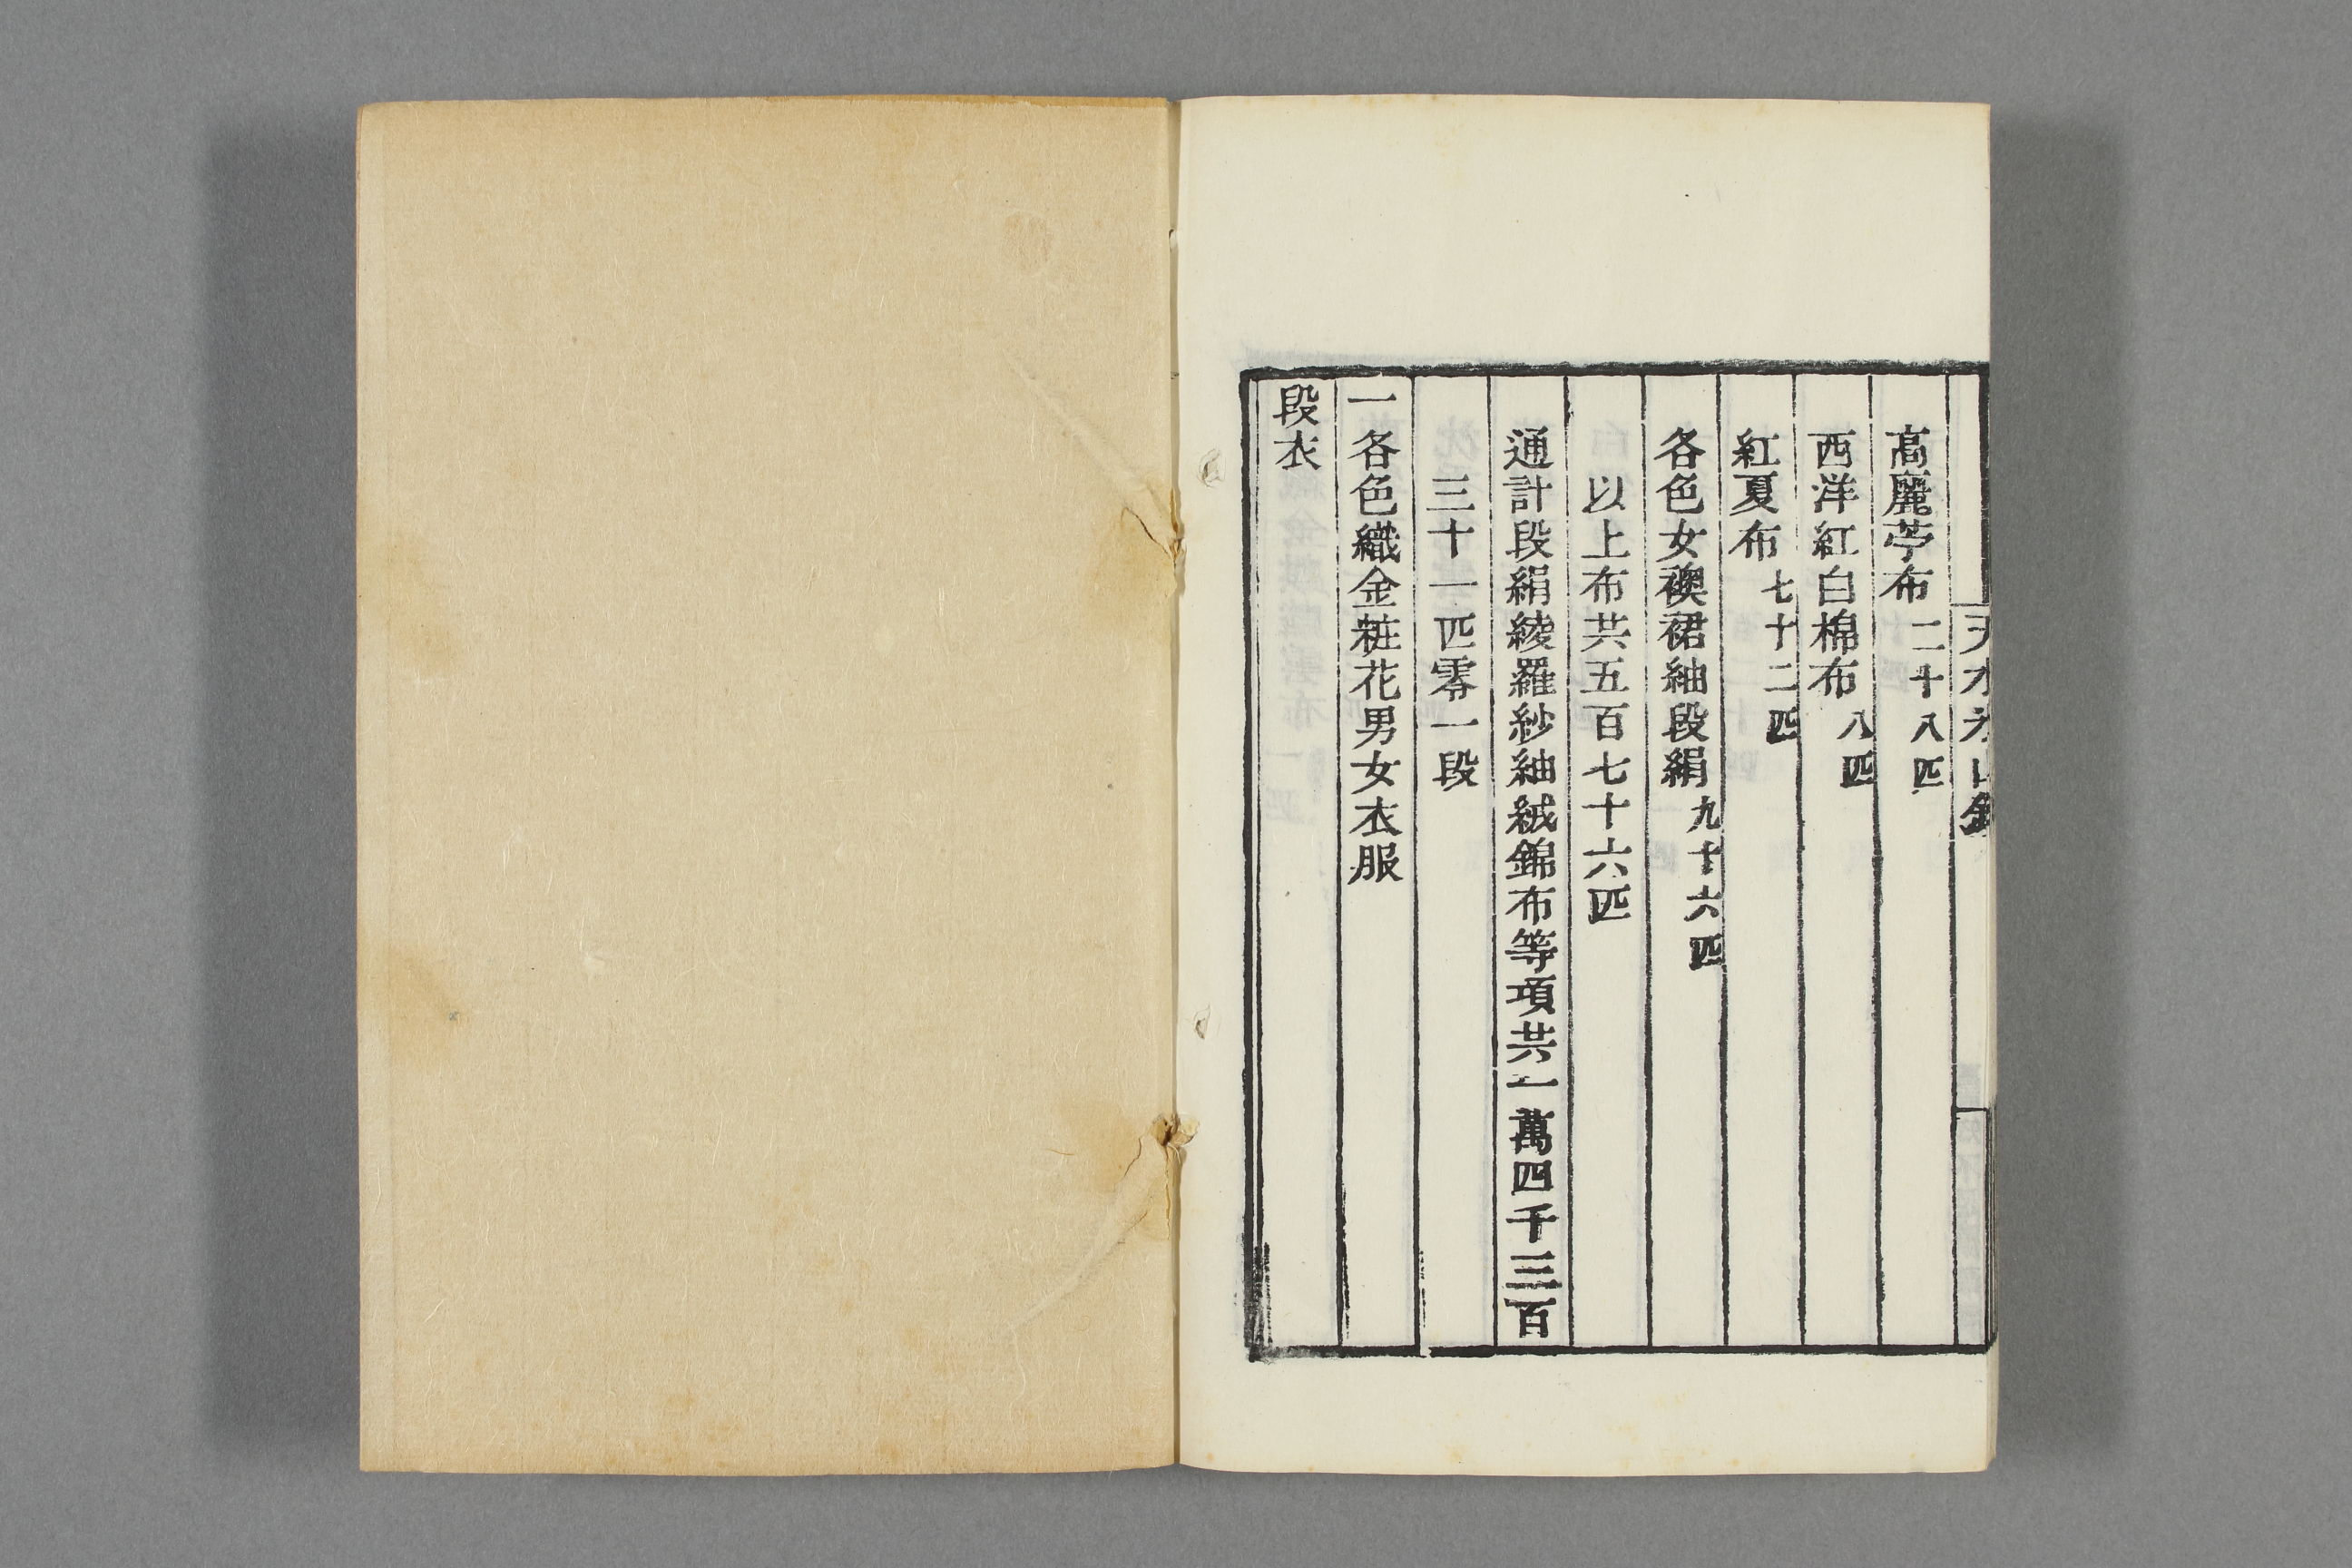 高麗苧布二十八匹
西洋紅白棉布八匹
紅夏布七十二匹
各色女襖裙紬段絹九十六匹
以上布共五百七十六匹
通計段絹綾羅紗紬絨錦布等項共一萬四千三百
三十一匹零一段
一各色織金粧花男女衣服
段衣